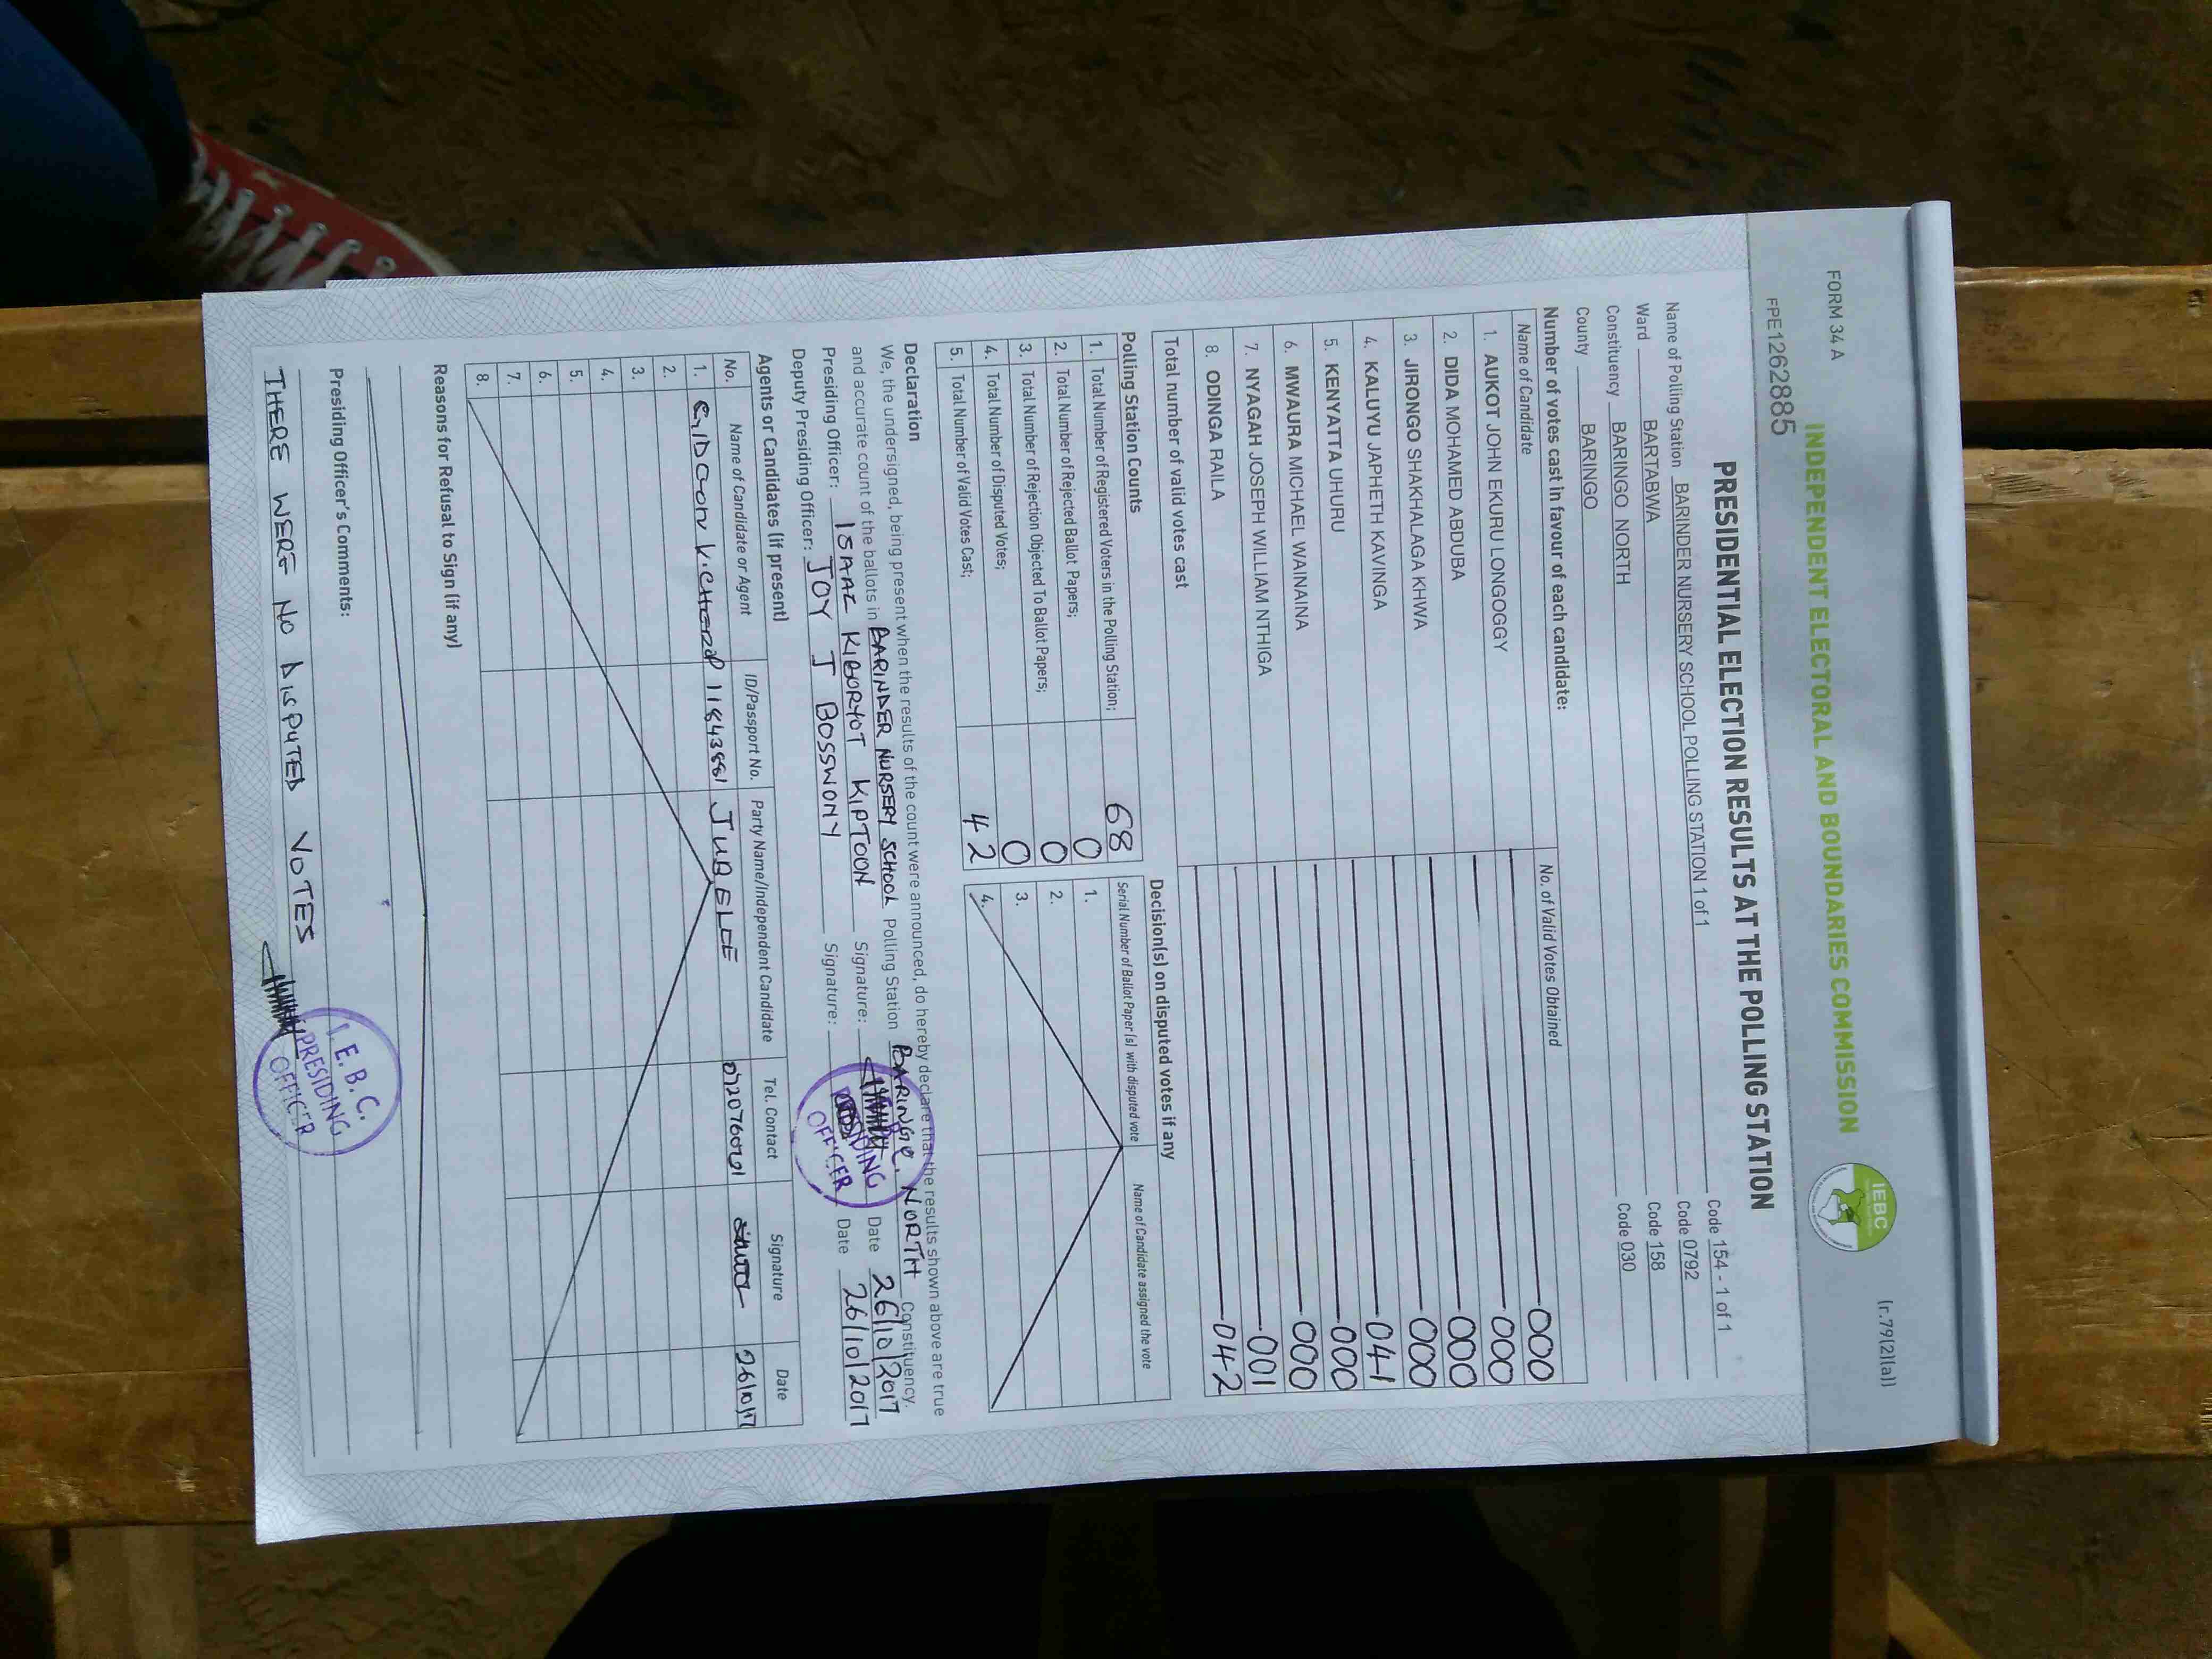 FORM 34 A
(r.79(2)(a))
INDEPENDENT ELECTORAL AND BOUNDARIES COMMISSION
IEBC
FPE126885
PRESIDENTIAL ELECTION RESULTS AT THE POLLING STATION
Code 154 - 1 of 1
Name of Polling Station BARINDER NURSERY SCHOOL POLLING STATION 1 of 1 Code 0792
Ward BARTABWA Code 158
Constituency BARINGO NORTH Code 030
County BARINGO
Number of votes cast in favour of each candidate:
Name of Candidate No. of Valid Votes Obtained
1. AUKOT JOHN EKURU LONGOGGY 000
2. DIDA MOHAMED ABDUBA 000
3. JIRONGO SHAKHALAGA KHWA 000
4. KALUYU JAPHETH KAVINGA 000
5. KENYATTA UHURU 041
6. MWAURA MICHAEL WAINAINA 000
7. NYAGAH JOSEPH WILLIAM NTHIGA 000
8. ODINGA RAILA 001
Total number of valid votes cast 042
Polling Station Counts
1. Total Number of Registered Voters in the Polling Station; 68
2. Total Number of Rejected Ballot Papers; 0
3. Total Number of Rejection Objected To Ballot Papers; 0
4. Total Number of Disputed Votes; 0
5. Total Number of Valid Votes Cast; 42
Decision(s) on disputed votes if any
Serial Number of Ballot Paper (s) with disputed vote Name of Candidate assigned the vote
1.
2.
3.
4.
Declaration
We, the undersigned, being present when the results of the count were announced, do hereby declare that the results shown above are true
and accurate count of the ballots in BARINDER NURSERY SCHOOL Polling Station BARINGO NORTH Constituency.
Presiding Officer: ISAAC KIBORTOT KIPTOON Signature: Date 26/10/2017
Deputy Presiding Officer: JOY J BOSSWONY Signature: Date 26/10/2017
PRESIDING
OFFICER
Agents or Candidates (if present)
No. Name of Candidate or Agent ID/Passport No. Party Name/Independent Candidate Tel. Contact Signature Date
1. GIDEON K. CHEROP 11843881 JUBELEE 26/10/17
2.
3.
4.
5.
6.
7.
8.
Reasons for Refusal to Sign (if any)
Presiding Officer's Comments:
THERE WERE NO DISPUTED VOTES
I. E. B. C.
PRESIDING
OFFICER